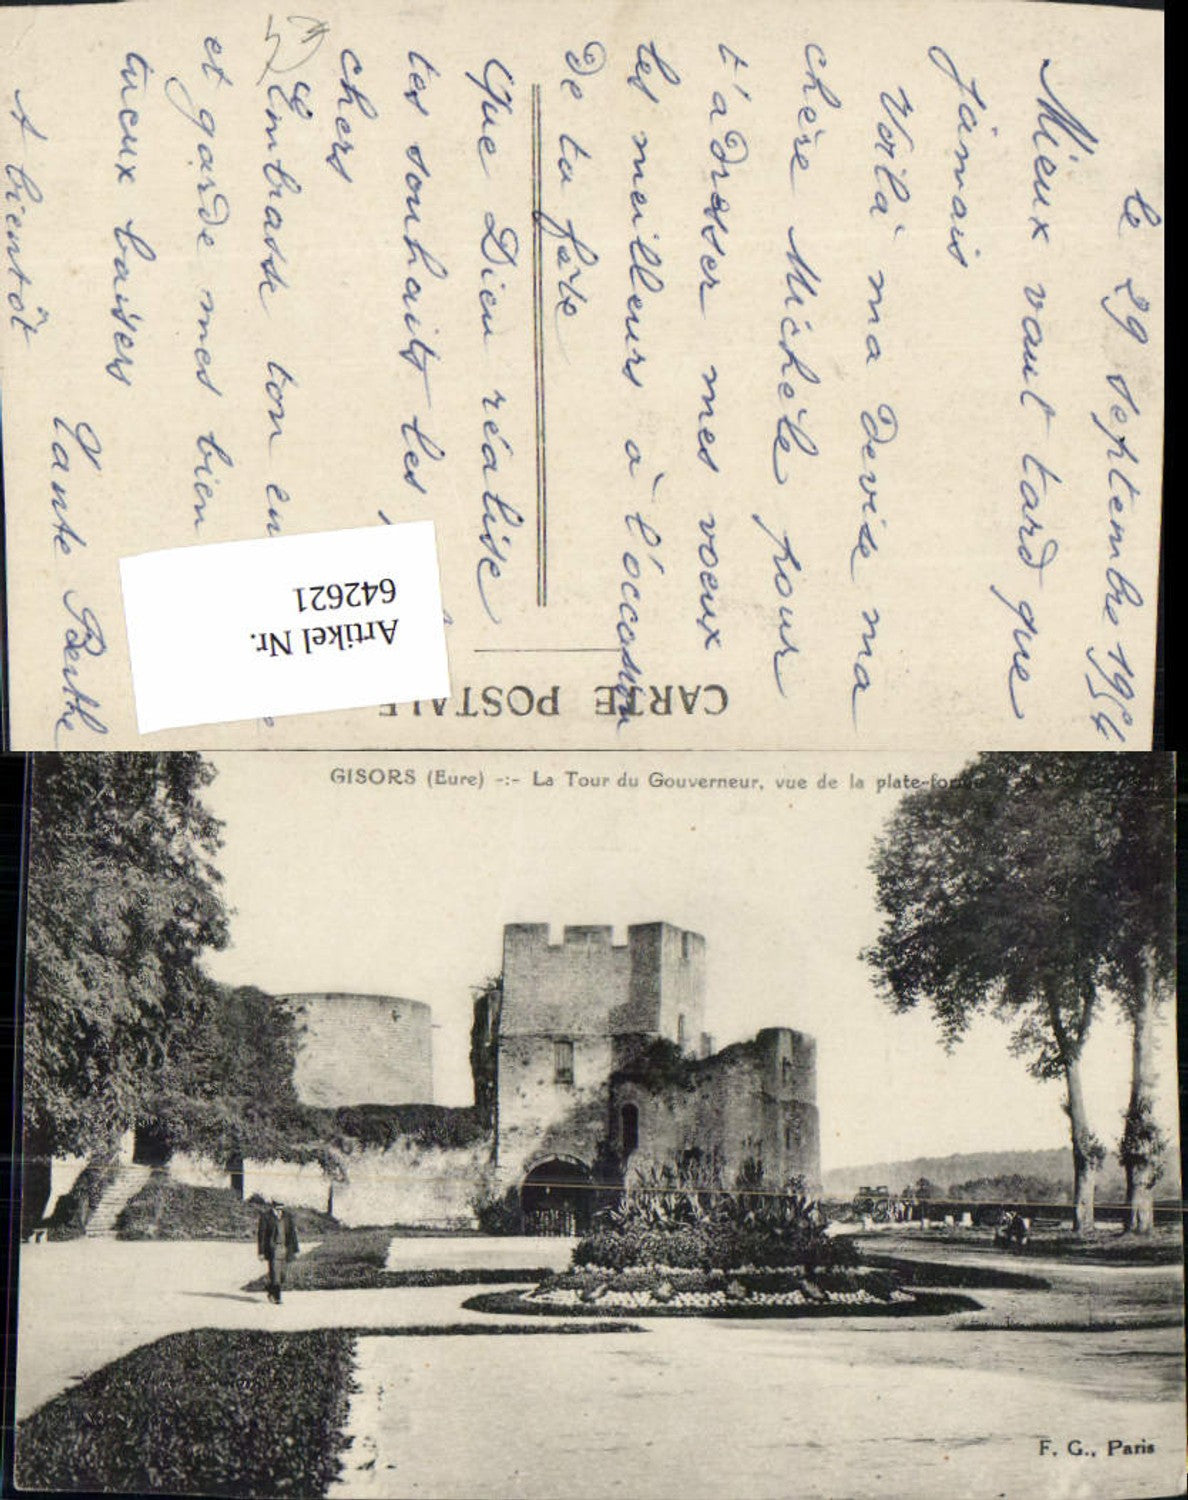 le 29 septembre 1954
Mieux vaut tard que
jamais
Voilà ma devise ma
chère Michèle pour
t'adresser mes voeux
les meilleurs à l'occasion
de ta fête
Que Dieu réalise
tes souhaits les
chers
Embrasse ton
et garde mes bien
tueux baisers
Tante Berthe
A bientôt
CARTE POSTALE
Artikel Nr.
642621
GISORS (Eure) -:- La Tour du Gouverneur, vue de la plate-forme
F. G., Paris